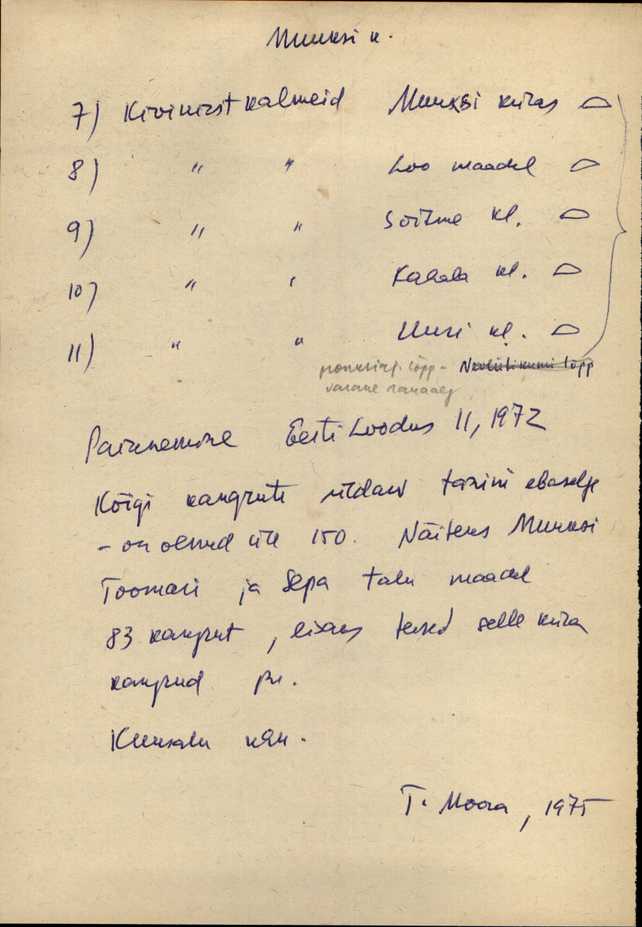 Muuksi k.
7) Kivikirstkalmeid Muuksi külas
8) " " Loo maadel
9) " " Sõitme kl.
10) " " Kahala kl.
11) " " Uuri kl.
pronksiaj. lõpp - Neoliitikumi lõpp
varane rauaaeg
Paiknemine Eesti Loodus 11, 1972
Kõigi kangrute üldarv täpselt
- on olnud üle 150. Näiteks Muuksi
Toomani ja Sepa talu maadel
83 kangrut, lisaks teised selle küla
kangrud
Kuusalu
T. Moora, 1975